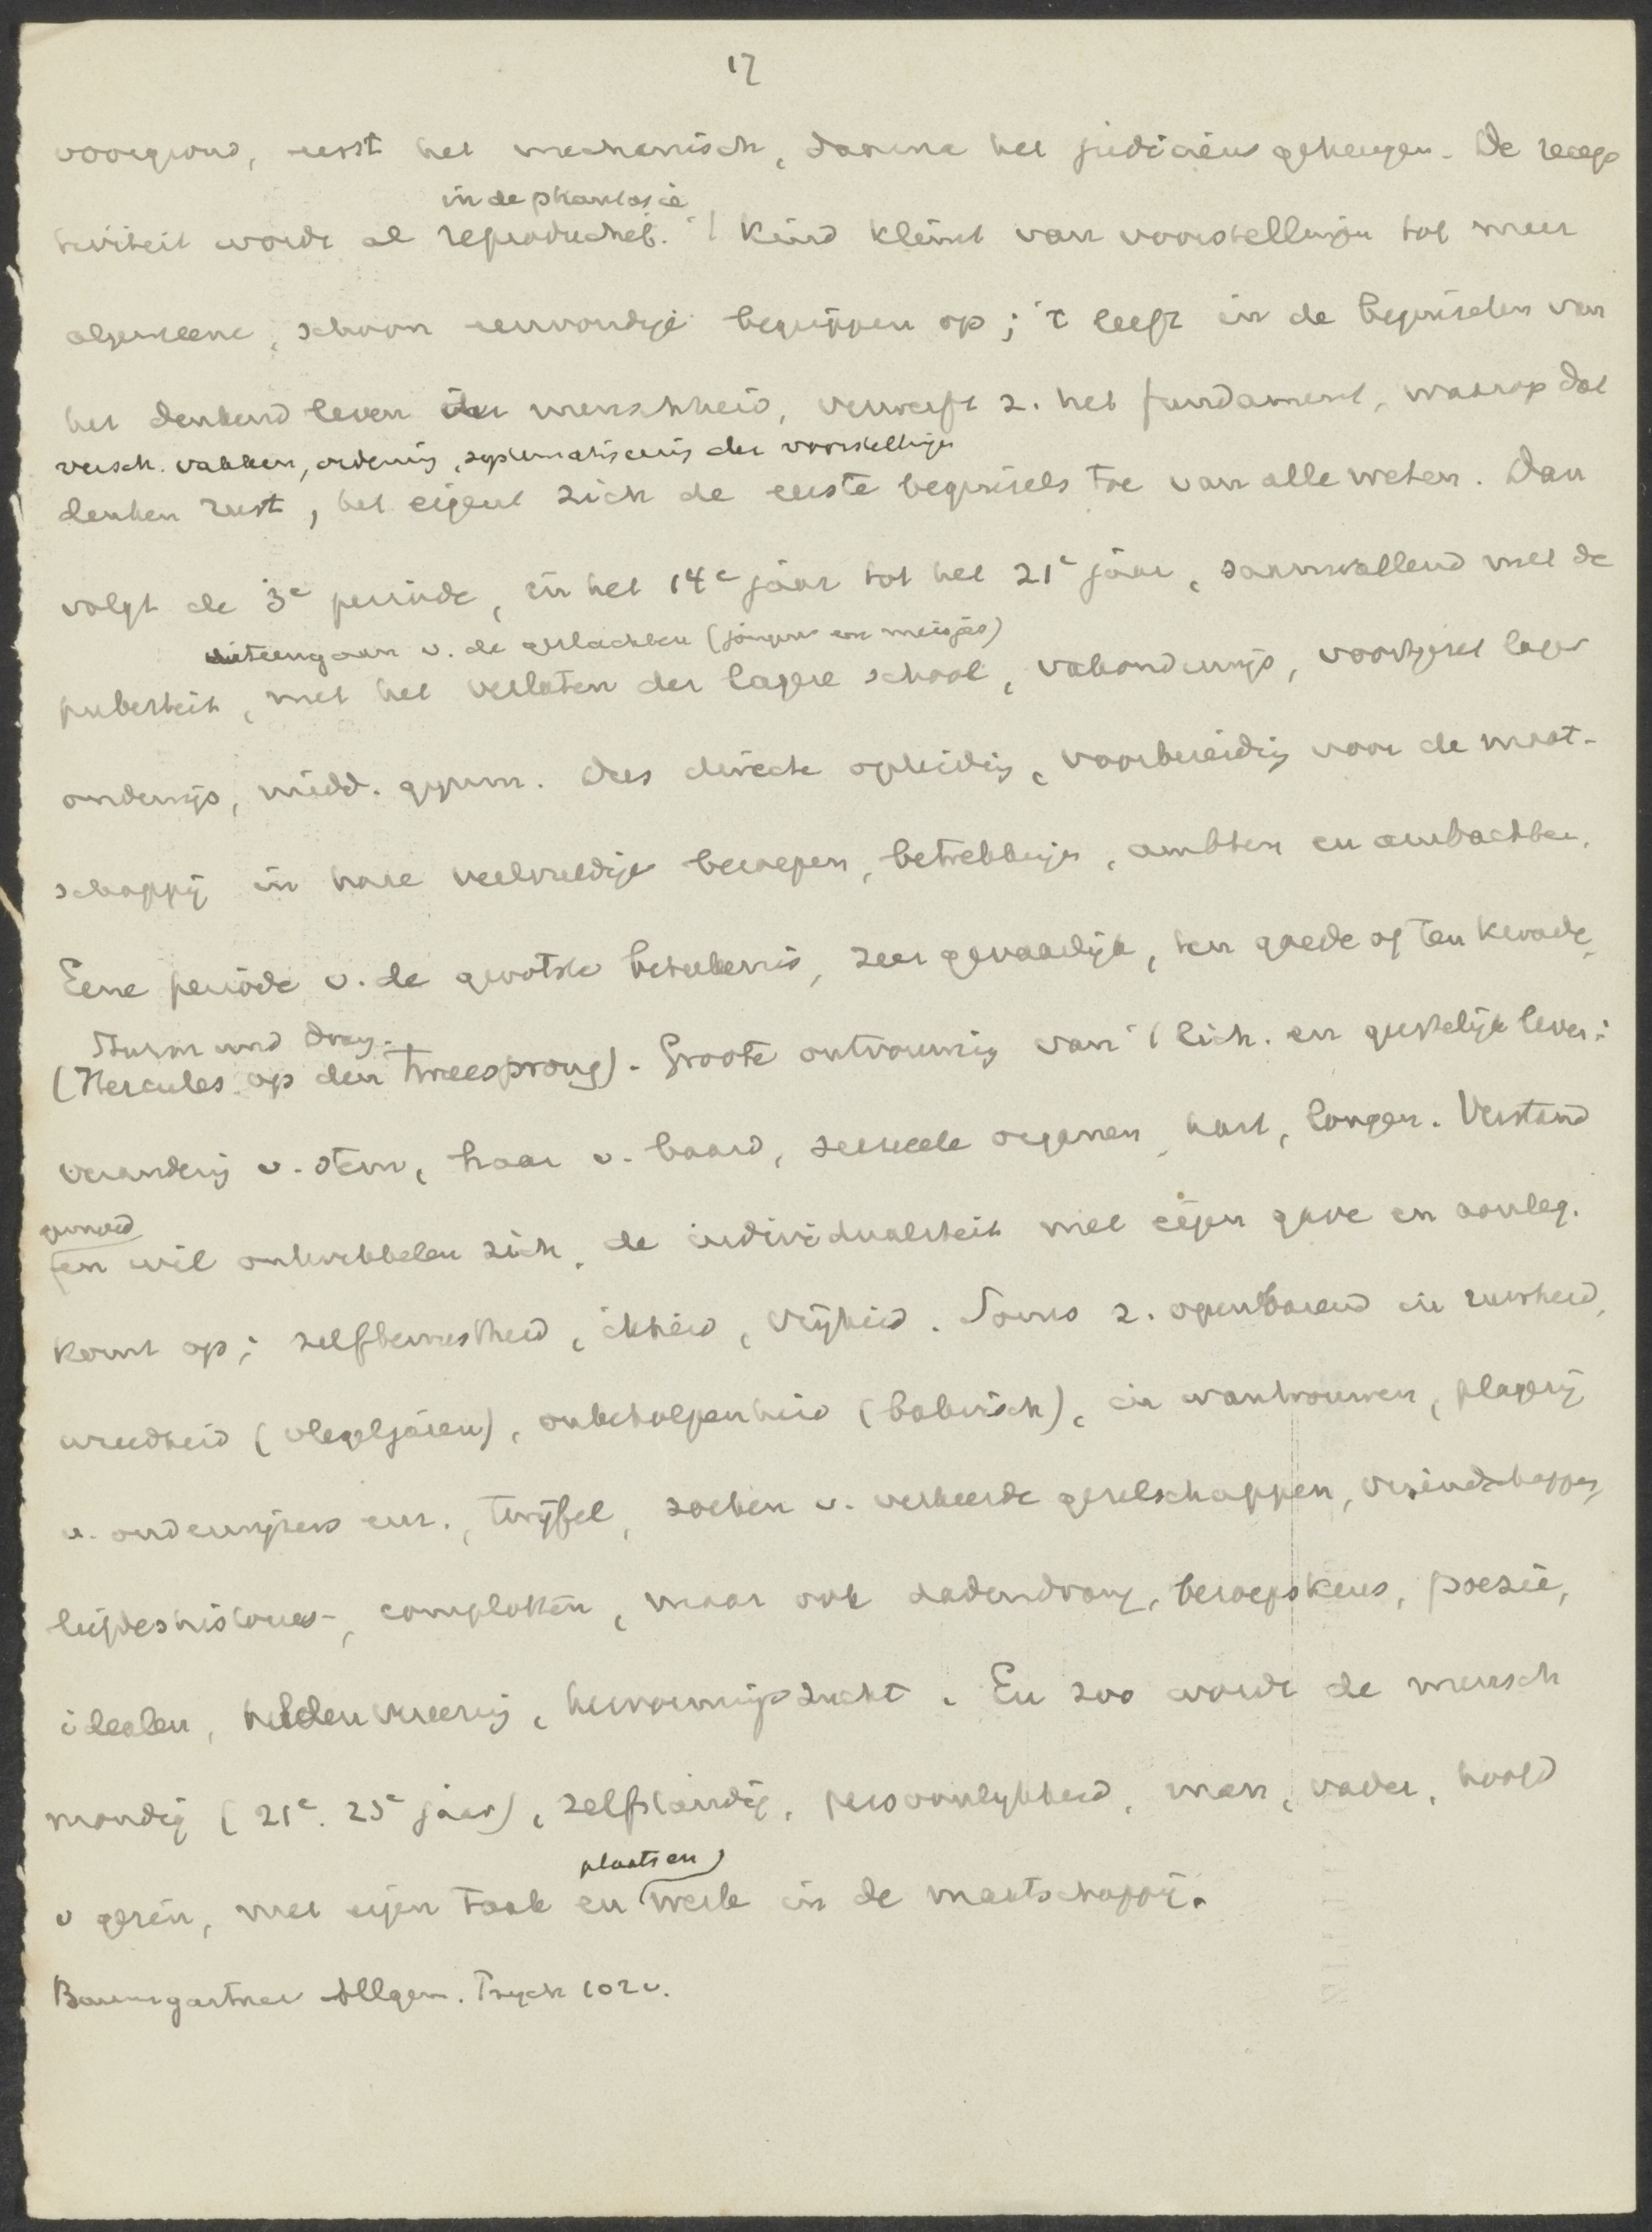 17
voorgrond, eerst het mechanisch, daarna het judicieus geheugen. De recep
in de phantasie
tiviteit wordt al reproductief. 't Kind klimt van voorstellingen tot meer
algemeene, schoon eenvoudige begrippen op; 't leeft in de beginselen van
het denkend leven der menschheid, verwerft z. het fundament, waarop dat
versch. vakken, ordening, systematiseering der voorstellingen
denken rust, het eigent zich de eerste beginsels toe van alle weten. Dan
volgt de 3e periode, in het 14e jaar tot het 21e jaar, samenvallend met de
uiteengaan v. de geslachten (jongens en meisjes)
puberteit, met het verlaten der lagere school, vakonderwijs, voortgezet lager
onderwijs, midd. gymn. Dus directe opleiding, voorbereiding voor de maat-
schappij in hare veelvuldige beroepen, betrekkingen, ambten en ambachten.
Eene periode v. de grootste beteekenis, zeer gevaarlijk, ten goede of ten kwade,
Sturm und Drang.
(Hercules op den tweesprong). Groote ontvouwing van 't lich. en geestelijk leven:
verandering v. stem, haar v. baard, sexueele organen, hart, longen. Verstand
gemoed
en wil ontwikkelen zich, de individualiteit met eigen gave en aanleg.
komt op; zelfbewustheid, ikheid, vrijheid. Soms z. openbarend in ruwheid,
wreedheid (vlegeljaren), onbeholpenheid (bakvisch), in wantrouwen, plagerij
v. onderwijzers enz., twijfel, zoeken v. verkeerde gezelschappen, vriendschappen,
liefdeshistories, complotten, maar ook dadendrang, beroepskeus, poezie,
idealen, heldenvereering, hervormingszucht. En zoo wordt de mensch
mondig (21e. 25e jaar), zelfstandig, persoonlijkheid, man, vader, hoofd
plaats en
v gezin, met eigen taak en werk in de maatschappij.
Baumgartner Allgem. Psych 102 v.